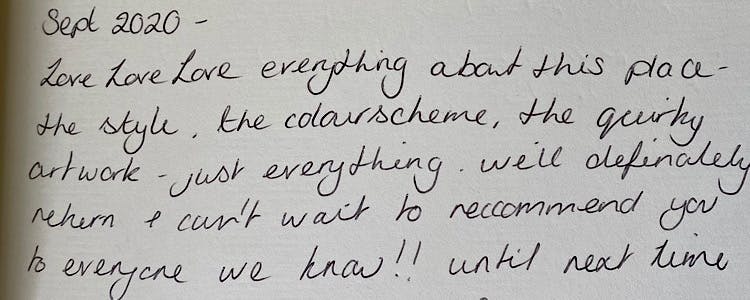 Sept 2020 -
Love Love Love everything about this place -
the style, the colourscheme, the quirky
artwork - just everything. we'll definately
return & can't wait to reccommend you
to everyone we know!! until next time